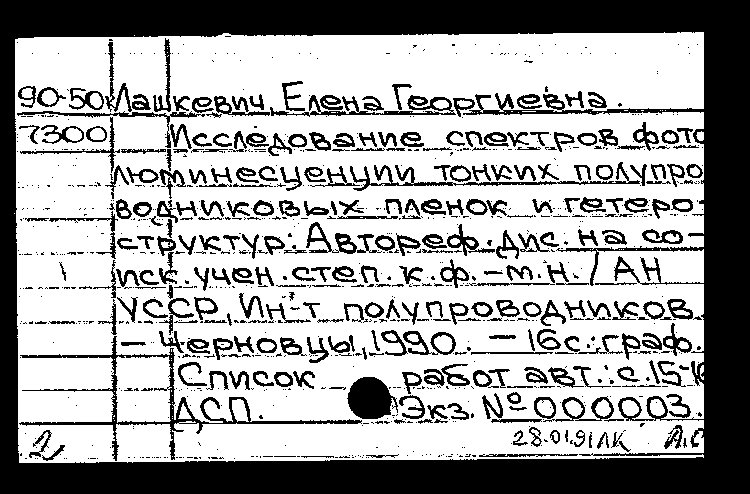 90-50к Лашкевич, Елена Георгиевна.
7300 Исследование спектров фото
люминесценции тонких полупро
водниковых пленок и гетеро-
структур: Автореф. дис. на со-
иск. учен. степ. к. ф.-м. н. / АН
УССР, Ин-т полупроводников.
– Черновцы, 1990. – 16 с.: граф.
Список работ авт.: с. 15-16
ДСП. Экз. № 000003.
2 28.01.91 ЛК А.С